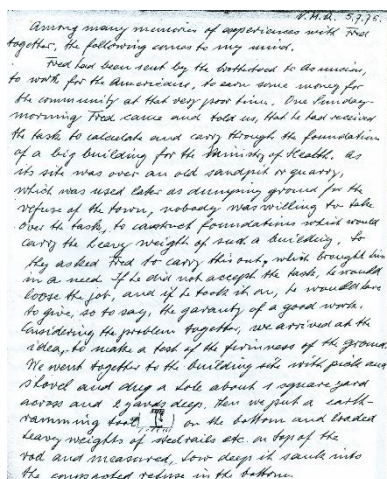 V.M.A. 5.7.75.
Among many memories of experiences with Fred
together, the following comes to my mind.
Fred had been sent by the brotherhood to Asuncion,
to work for the Americans, to earn some money for
the community at that very poor time. One Sunday-
morning Fred came and told us, that he had received
the task to calculate and carry through the foundation
of a big building for the Ministry of Health. As
its site was over an old sandpit or quarry,
which was used later as dumping ground for the
refuse of the town, nobody was willing to take
over the task, to construct foundations which would
carry the heavy weight of such a building. So
they asked Fred to carry this out, which brought him
in a need. If he did not accept the task, he would
loose the job, and if he took it on, he would have
to give, so to say, the garanty of a good work.
Considering the problem together, we arrived at the
idea, to make a test of the firmness of the ground.
We went together to the building site with pick and
shovel and dug a hole about 1 square yard
across and 2 yards deep. Then we put a earth-
ramming tool on the bottom and loaded
heavy weights of steel rails etc. on top of the
rod and measured, how deep it sank into
the compacted refuse in the bottom.